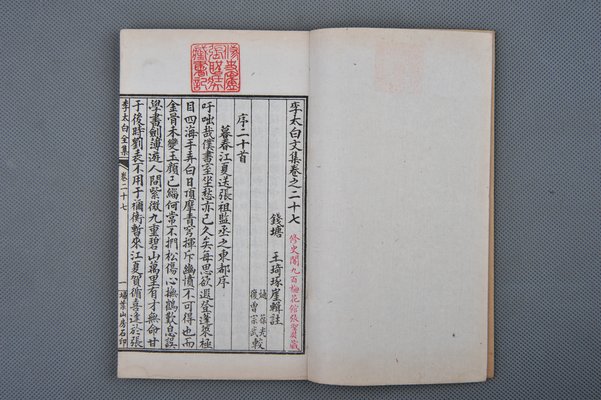 李太白文集卷之二十七
錢塘 王琦琢崖輯註
修史閣九百梅花館張
葆光
復曾宗武較
序二十首
暮春江夏送張祖監丞之東都序
吁咄哉僕書室坐愁亦已久矣每思欲遐登蓬萊極
目四海手弄白日頂摩青穹揮斥幽憤不可得也而
金骨未變玉顏已緇何常不捫松傷心撫鶴歎息誤
學書劍薄遊人間紫微九重碧山萬里有才無命甘
于後時劉表不用于禰衡暫來江夏賀循喜逢於張
李太白全集 卷二十七 一 掃葉山房石印